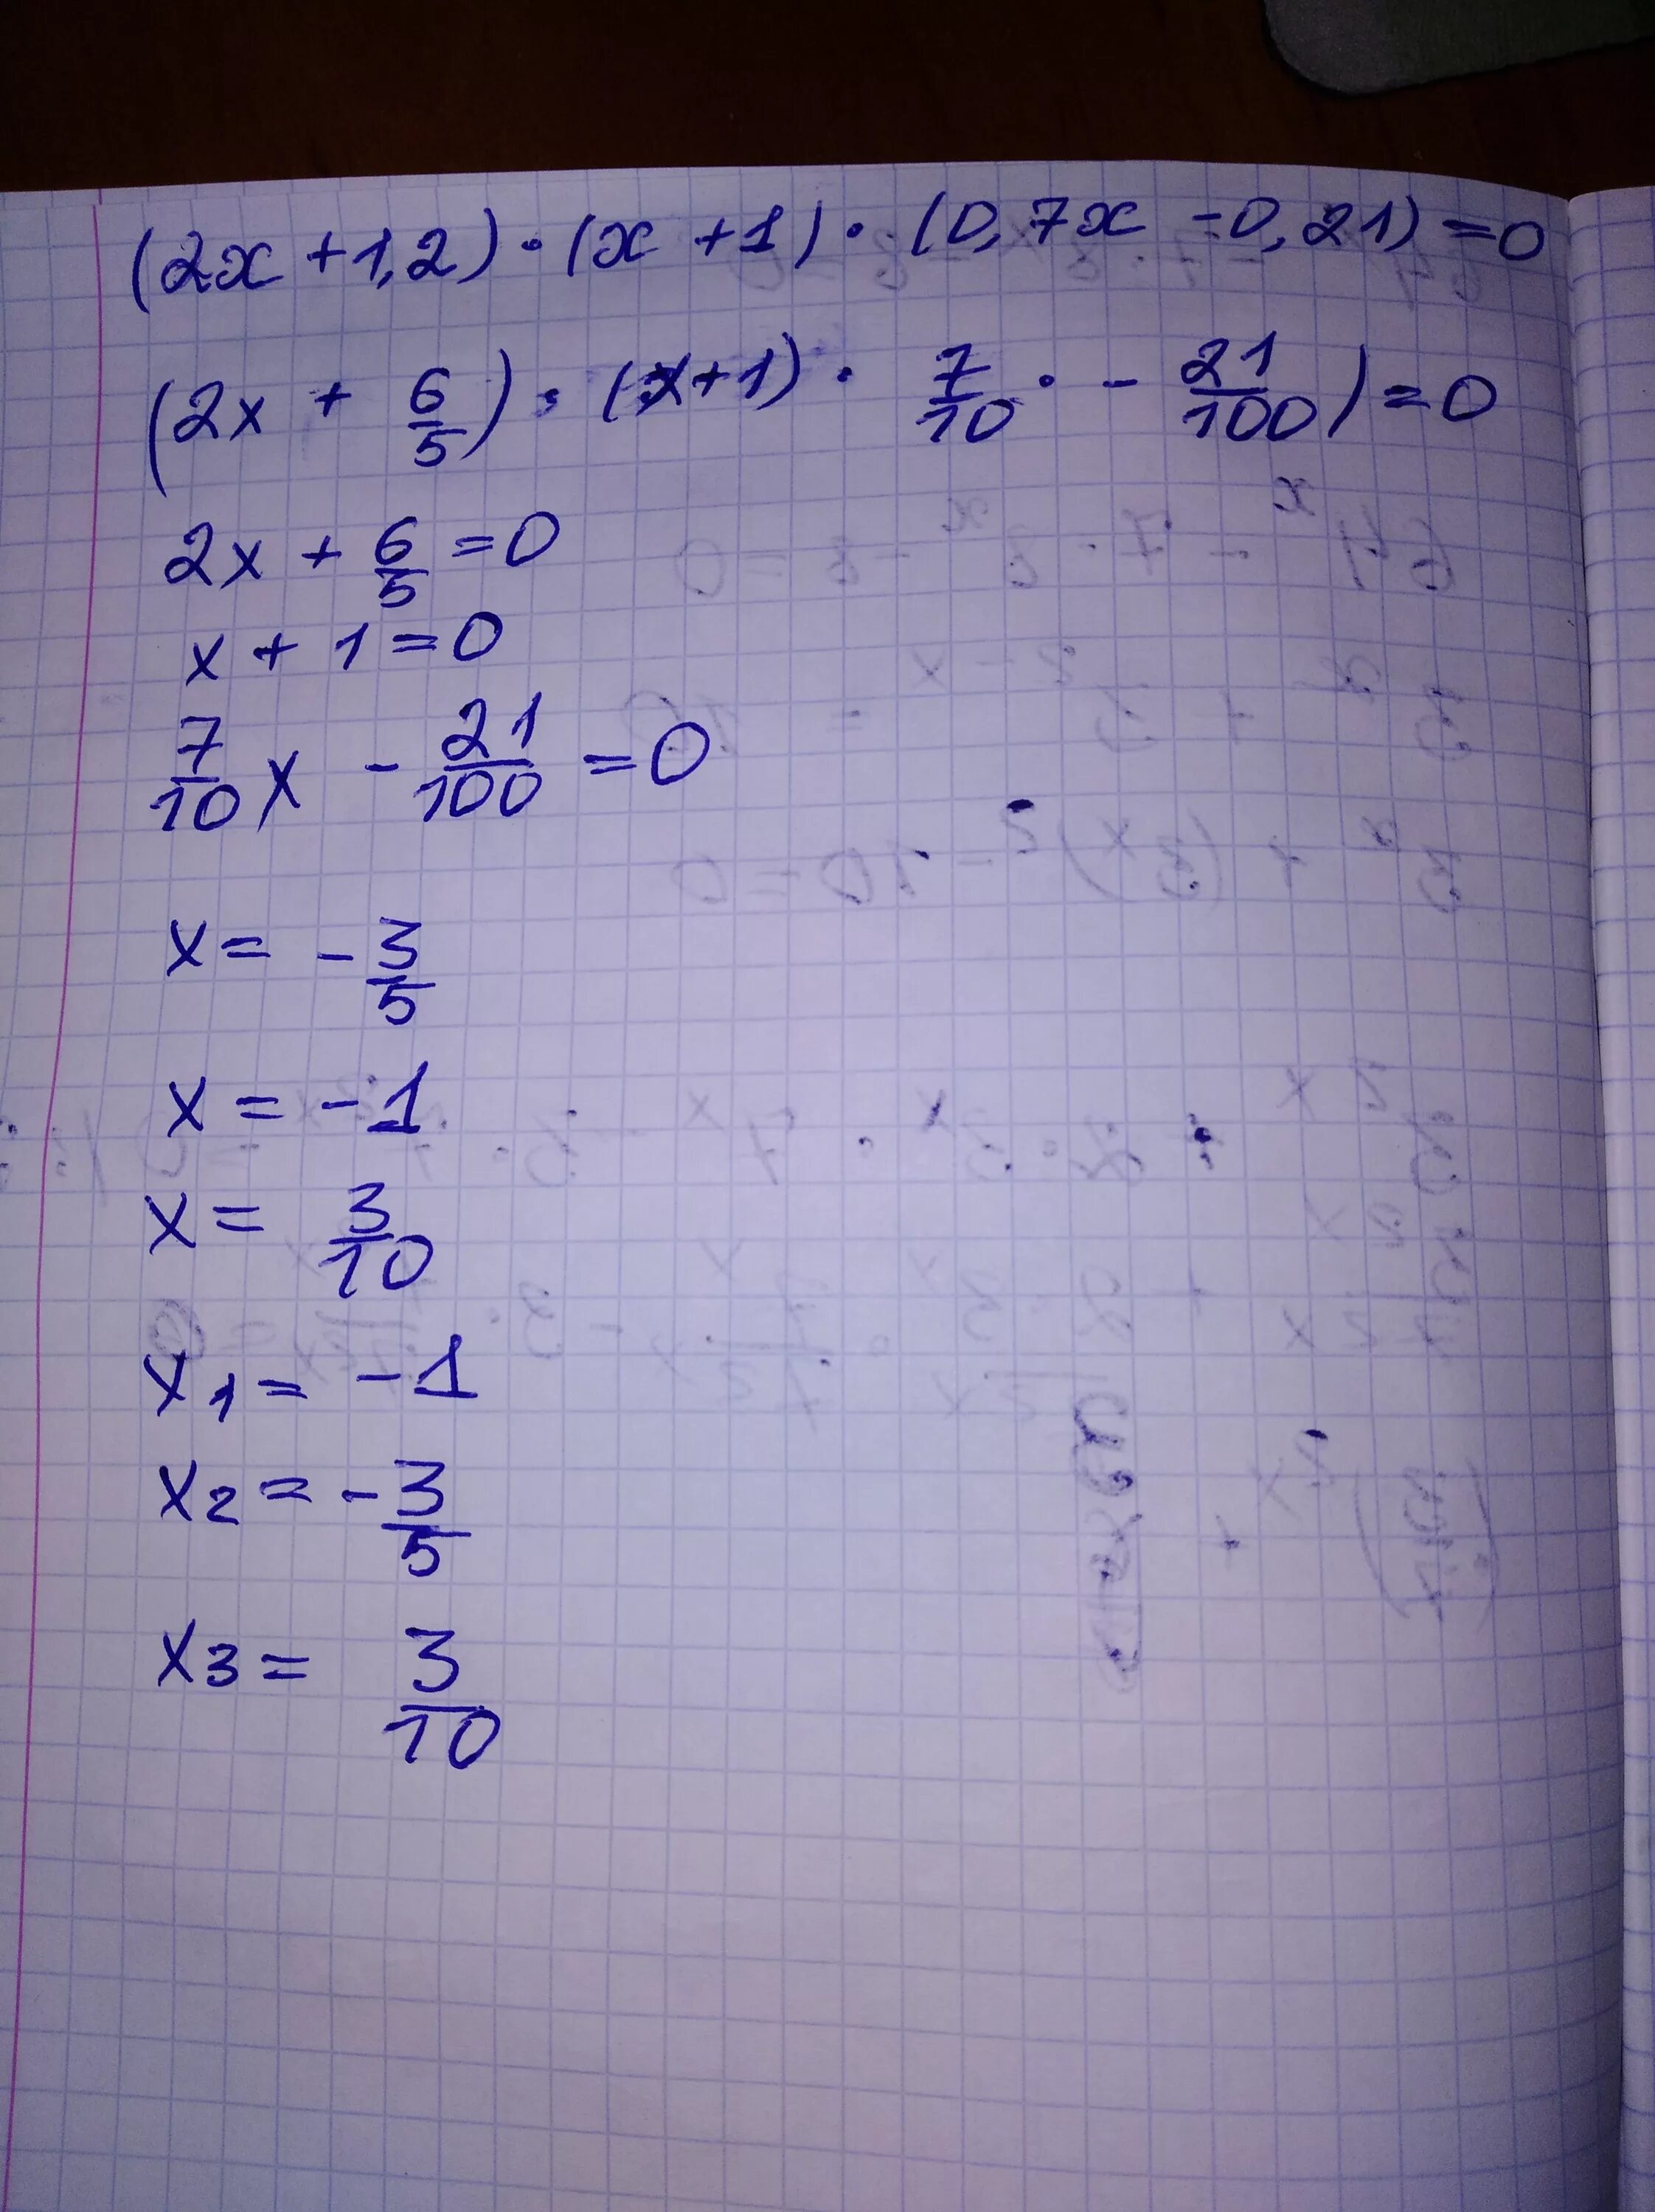 (2x + 1,2) · (x + 1) · (0,7x - 0,21) = 0
(2x + 6/5) · (x + 1) · 7/10 · - 21/100) = 0
2x + 6/5 = 0
x + 1 = 0
7/10 x - 21/100 = 0
x = - 3/5
x = - 1
x = 3/10
x1 = - 1
x2 = - 3/5
x3 = 3/10